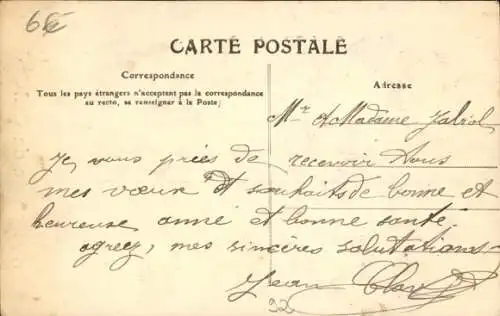 6€
CARTE POSTALE
Correspondance
Tous les pays étrangers n'acceptent pas la correspondance
au recto, se renseigner à la Poste;
Adresse
Mr & Madame
Je vous pries de recevoir tous
mes vœux et souhaits de bonne et
heureuse anné et bonne santé,
agreez, mes sincères salutations
Jean
32